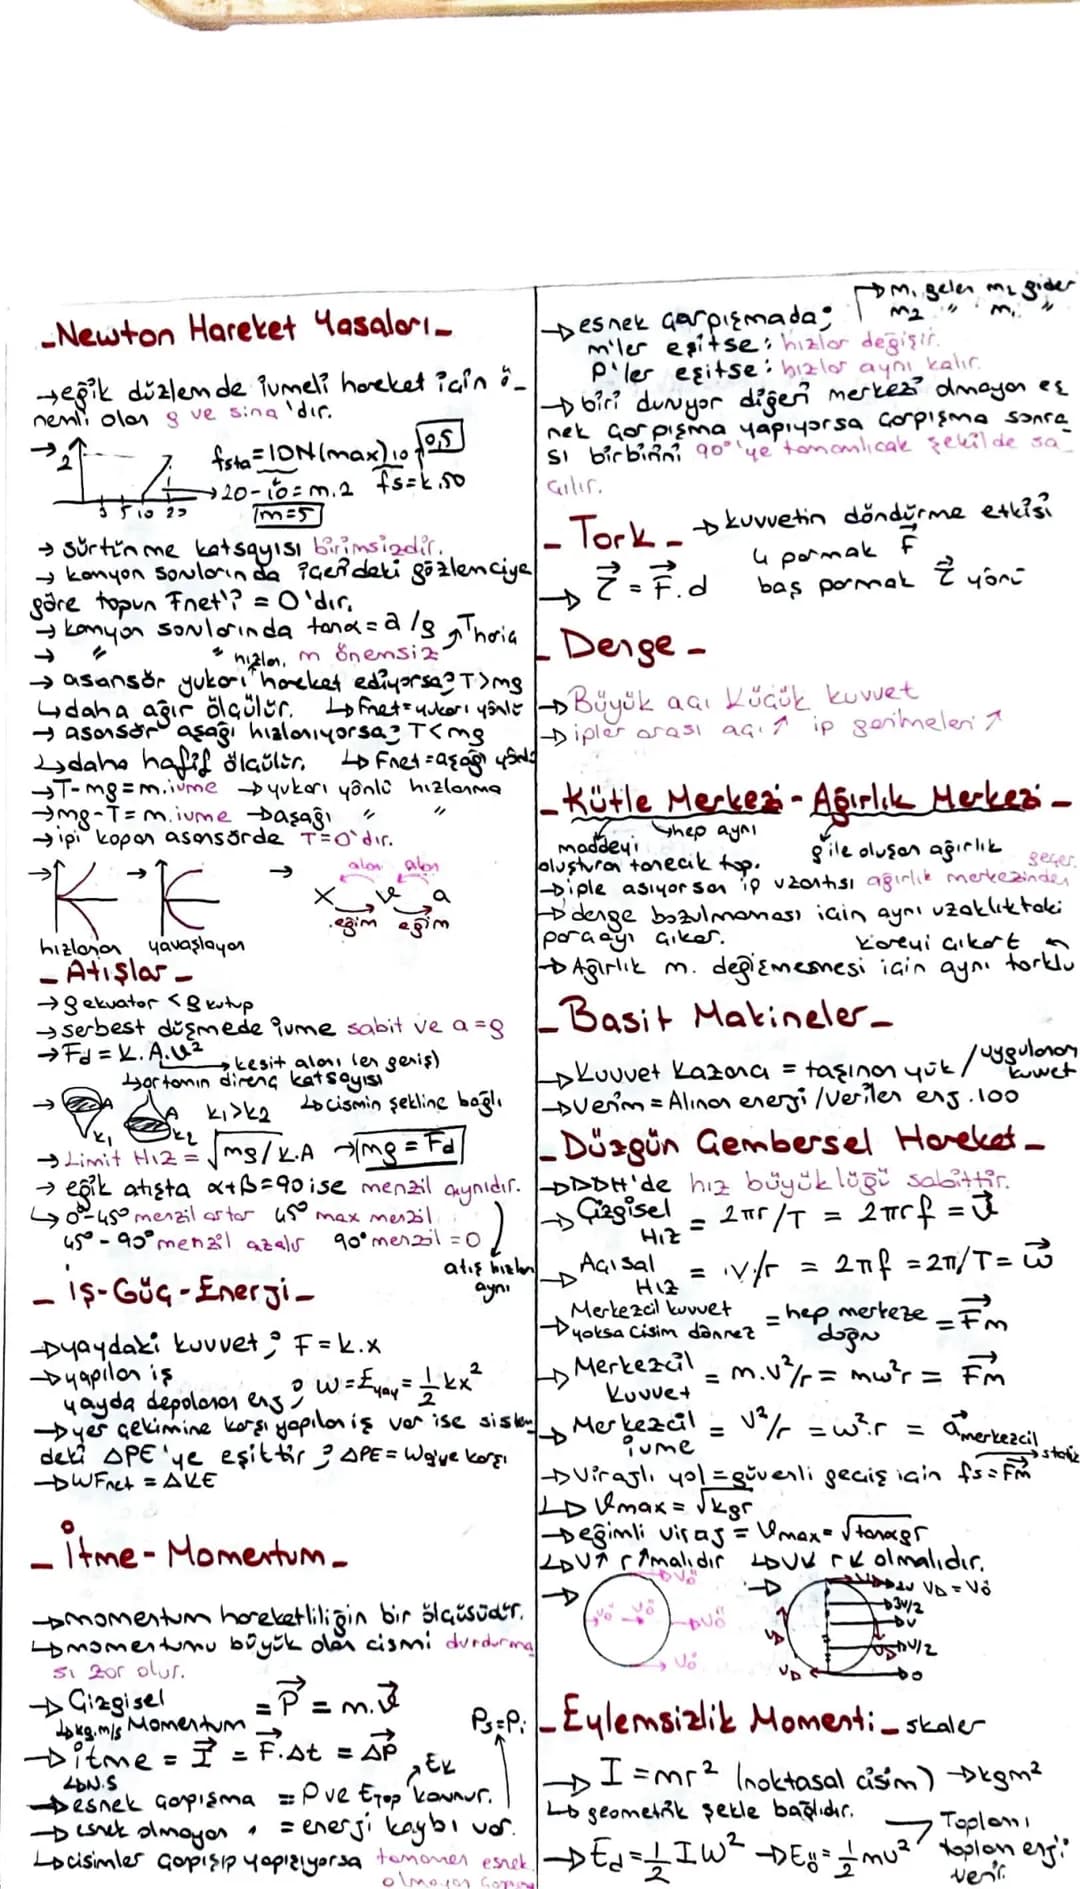 _Newton Hareket Yasaları_
→eğik düzlemde ivmeli hareket için ö-
nemli olan g ve sina'dır.
→ 2
fsta=10N(max) 10 0,5
→20-10=m.2 fs=k.50
5 10 20
m=5
→ sürtünme katsayısı birimsizdir.
→ kamyon sorularında içerdeki gözlemciye
göre topun Fnet'? = 0'dır.
→ kamyon sorularında tanα=a/g
→ " " hızlan. m önemsiz
→ asansör yukarı hareket ediyorsa? T>mg
↳daha ağır ölçülür. ↳Fnet=yukarı yönlü
→ asansör aşağı hızlanıyorsa; T<mg
↳daha hafif ölçülür. ↳Fnet=aşağı yönlü
→T-mg=m.ivme →yukarı yönlü hızlanma
→mg-T=m.ivme →aşağı " "
→ipi kopan asansörde T=0'dır.
→ → → alan alan
x ve a
eğim eğim
hızlanan yavaşlayan
_Atışlar_
→g ekvator < g kutup
→serbest düşmede ivme sabit ve a=g
→Fd=K.A.V²
→kesit alanı (en geniş)
↳ortamın direnç katsayısı
→ A A k1>k2 ↳cismin şekline bağlı
k1 k2
→Limit Hız = √mg/k.A →mg=Fd
→ eğik atışta α+β=90 ise menzil aynıdır.
↳0°-45° menzil artar 45° max menzil
45°-90° menzil azalır 90° menzil=0
atış hızları
aynı
_ İş-Güç-Enerji_
→yaydaki kuvvet; F=k.x
→yapılan iş
yayda depolanan enj; W=Eyay=1/2kx²
→yer çekimine karşı yapılan iş var ise sistem
deki ΔPE'ye eşittir; ΔPE=Wg'ye karşı
→WFnet = ΔKE
_İtme-Momentum_
→momentum hareketliliğin bir ölçüsüdür.
↳momentumu büyük olan cismi durdurma
sı zor olur.
→Çizgisel
Momentum = P = m.v
↳kg.m/s
Ps=Pi
→itme = I = F.Δt = ΔP
↳N.s
→esnek çarpışma = P ve Etop korunur.
Ek
→esnek olmayan " = enerji kaybı var.
↳cisimler çarpışıp yapışıyorsa tamamen esnek
olmayan
→m1 gelen m2 gider
m2 " m1 "
→esnek çarpışmada;
m'ler eşitse; hızlar değişir.
P'ler eşitse: hızlar aynı kalır.
→biri duruyor diğeri merkezi olmayan es
nek çarpışma yapıyorsa çarpışma sonra_
sı birbirini 90°'ye tamamlıcak şekilde sa_
çılır.
_Tork_ →kuvvetin döndürme etkisi
4 parmak F
→ τ = F.d baş parmak τ yönü
_Denge_
→Büyük açı küçük kuvvet
→ipler arası açı↑ ip gerilmeleri↑
_Kütle Merkezi-Ağırlık Merkezi_
↳hep aynı
maddeyi g ile oluşan ağırlık
oluşturan tanecik top. geçer.
→iple asıyorsan ip uzantısı ağırlık merkezinden
→denge bozulmaması için aynı uzaklıktaki
parçayı çıkar. kareyi çıkart
→Ağırlık m. değişmesnesi için aynı torklu
_Basit Makineler_
→Kuvvet Kazancı = taşınan yük / uygulanan
kuvvet
→Verim = Alınan enerji / Verilen enj.100
_Düzgün Çembersel Hareket_
→DDDH'de hız büyüklüğü sabittir.
→Çizgisel
Hız = 2πr/T = 2πrf = v
→Açısal
Hız = V/r = 2πf = 2π/T = ω
→Merkezcil kuvvet
yoksa cisim dönmez = hep merkeze
doğru = Fm
→Merkezcil
Kuvvet = m.v²/r = mw²r = Fm
→Merkezcil
ivme = V²/r = w².r = a merkezcil
→statik
→Virajlı yol=güvenli geçiş için fs=Fm
↳Vmax=√kgr
→eğimli viraj = Vmax=√tanαgr
↳V↑ r↑malıdır ↳V↓ r↓ olmalıdır.
→ Vö → 2V VD=Vö
3V/2
Vö Vö Vö V
VD V/2
Vö VD 0
_Eylemsizlik Momenti_skaler
→ I=mr² (noktasal cisim) →kgm²
↳geometrik şekle bağlıdır.
→Ed=1/2Iw² →Eö=1/2mv² Toplamı
toplam enj'i
verir.